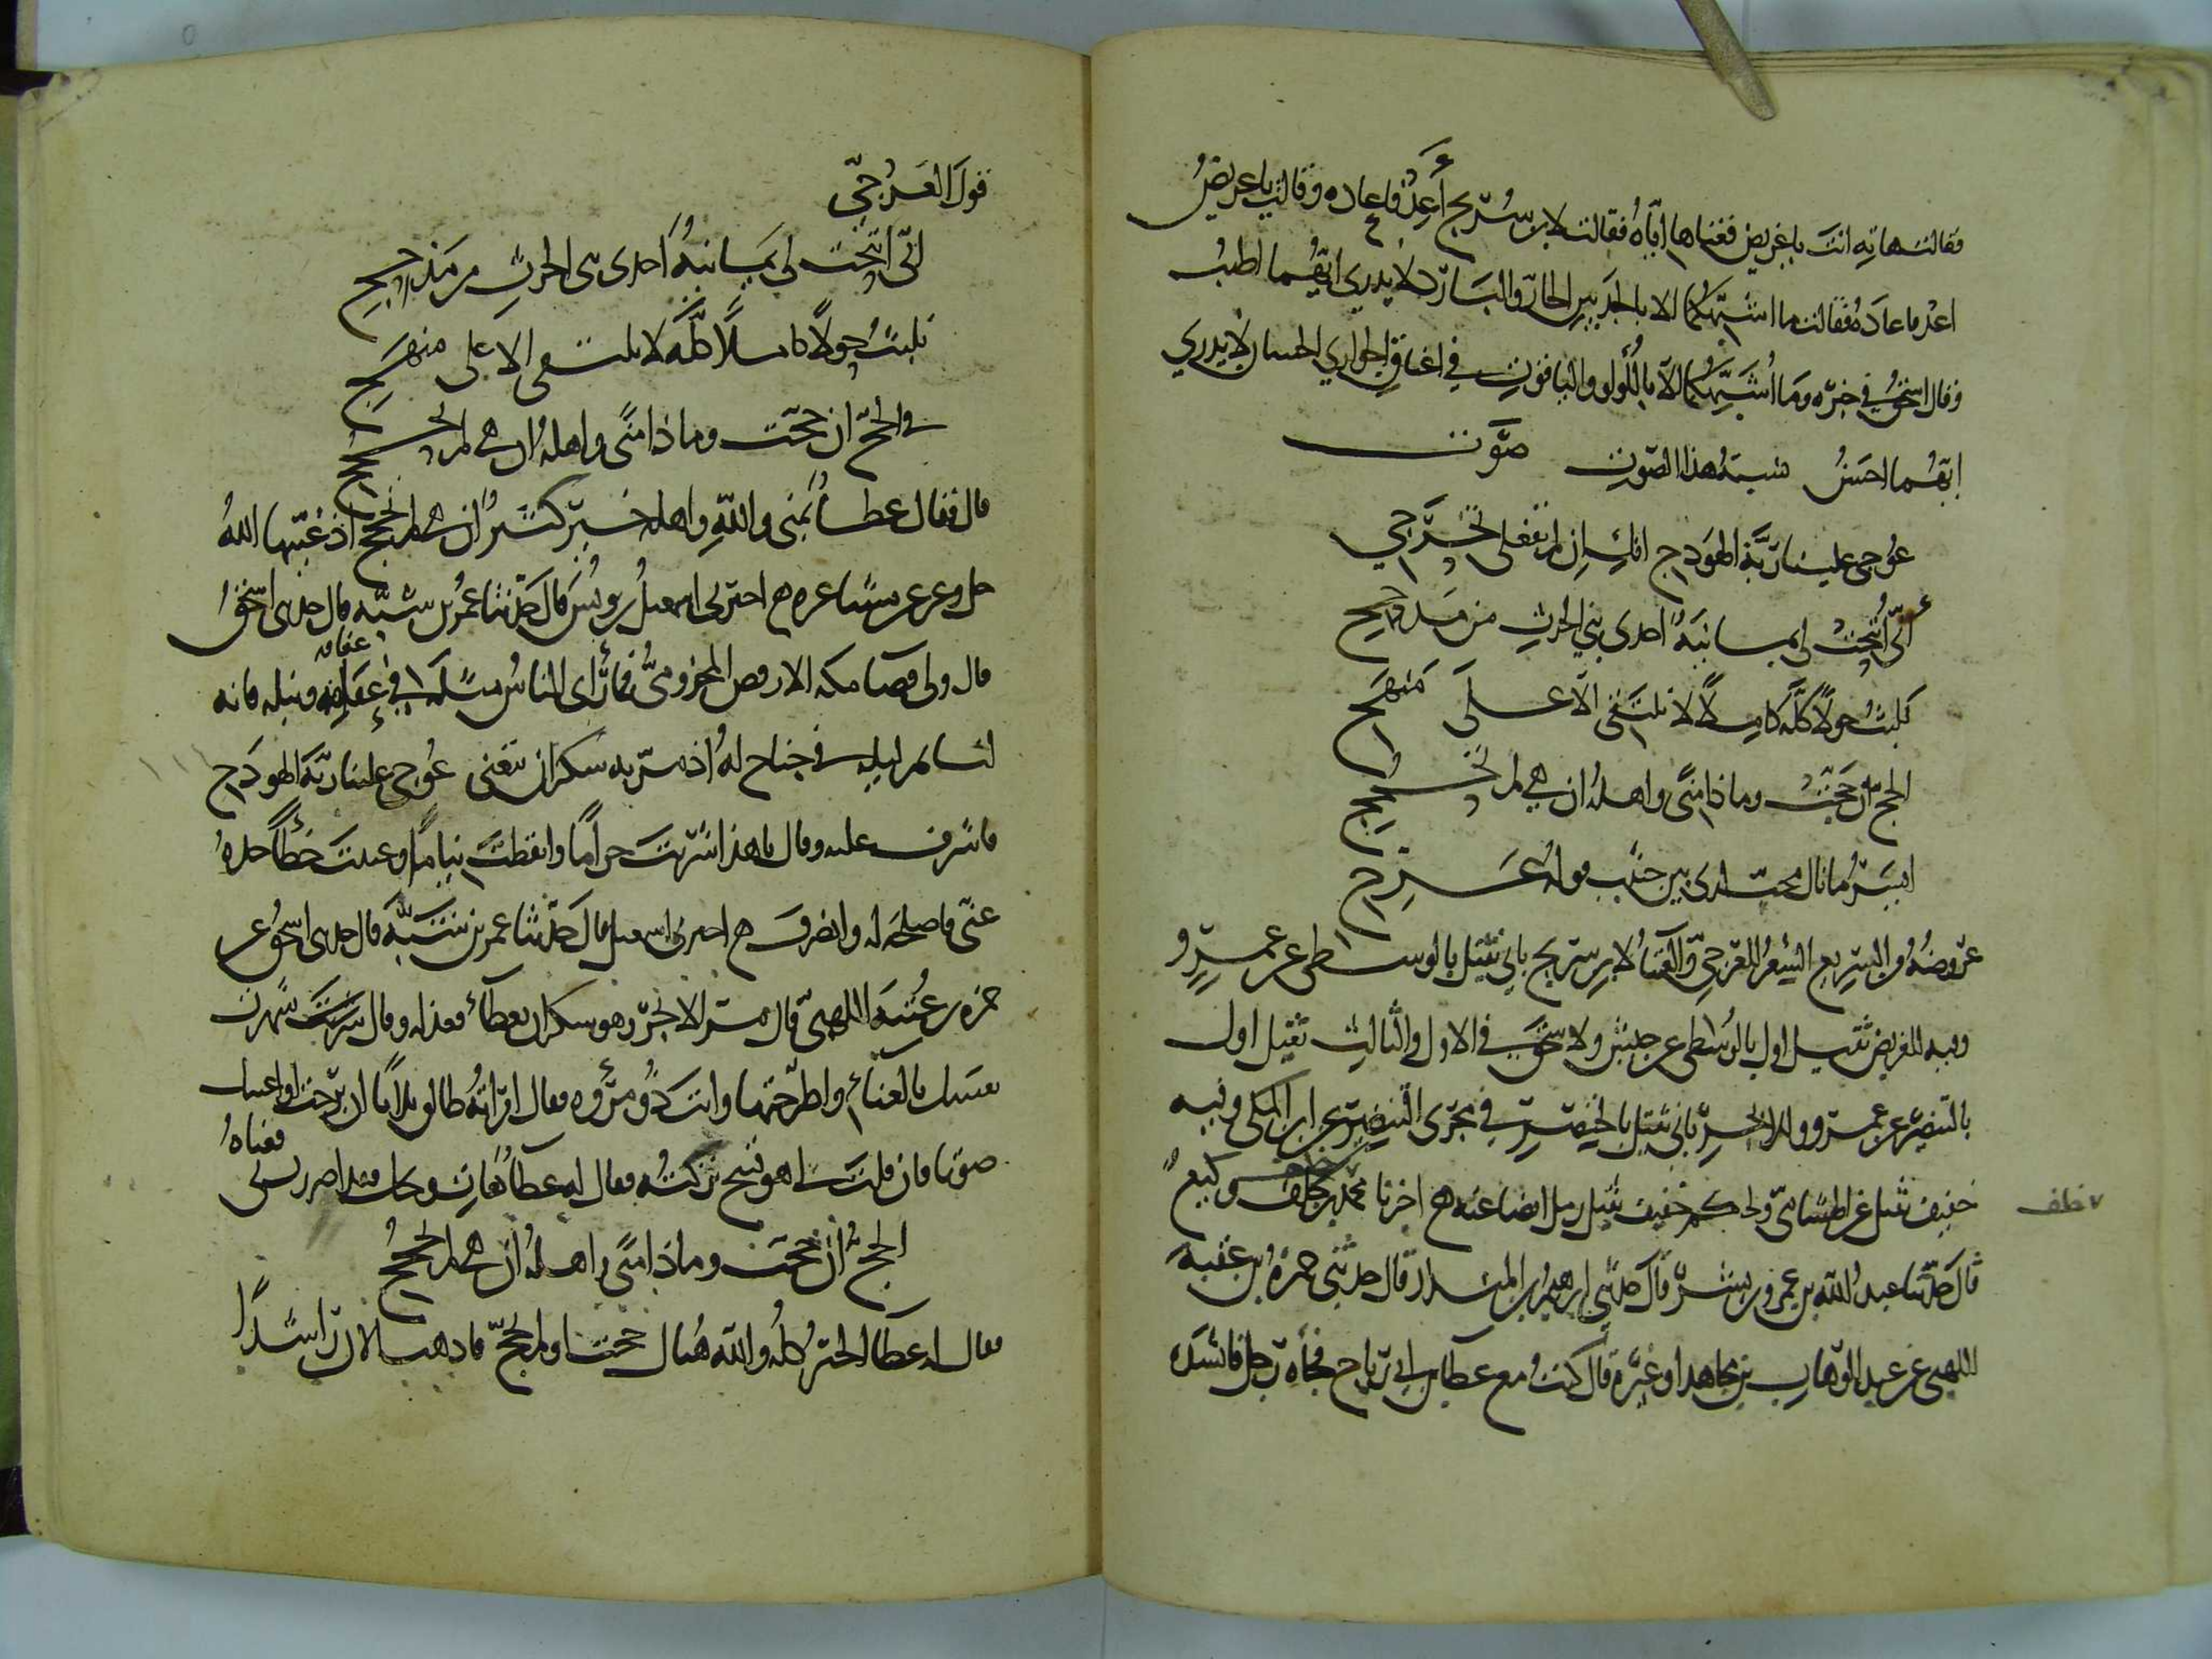 فقالت هاته انت يا غريض فغناها اياه فقالت لابن سريج أعد فاعاده وقالت يا غريض
اعد فاعاده فقالت ما اشبهكما الا بالجديين الحار والبارد لا يدري ايهما اطيب
وقال اسحق في خبره وما اشبهكما الا باللولو والياقوت في اعناق الجواري الحسان لا يدري
ايهما احسن نسبة هذا الصوت صوت
عوجي علينا ربة الهودج انك ان لم تفعلي تحرجي
اني اتيحت لي يمانية احدى بني الحرث من مذحج
نلبث حولا كله كاملا لا نلتقي الا على منهج
الحج ان حجت وماذا منى واهله ان هي لم تحجج
ايسر ما نال محب لدى بين حبيب قوله عرج
عروضه من السريع الشعر للعرجي والغناء لابن سريج ثاني ثقيل بالوسطى عن عمرو
وفيه للغريض ثقيل اول بالوسطى عن حبش ولاسحق في الاول والثالث ثقيل اول
بالبنصر عن عمرو وللابجر ثاني ثقيل بالخنصر في مجرى البنصر عن ابن المكي وفيه
خفيف ثقيل عن الهشامي ولحكم خفيف ثقيل رمل ايضا عنه ح اخبرنا محمد بن خلف وكيع
٧ خلف
قال حدثنا عبد الله بن عمرو بن بشر قال حدثني ابرهيم بن المنذر قال حدثني حمزة بن عتبة
اللهبي عن عبد الوهاب بن مجاهد او غيره قال كنت مع عطا بن ابي رباح فجاه رجل فانشده
قول العرجي
اني اتيحت لي يمانية احدى بني الحرث من مذحج
نلبث حولا كاملا كله لا نلتقي الا على منهج
في الحج ان حجت وماذا منى واهله ان هي لم تحجج
قال فقال عطاء بمنى والله واهله خير كثير ان هي لم تحجج اذ غيبها الله
جل وعز عن مشاعره ح اخبرني اسمعيل بن يونس قال حدثنا عمر بن شبه قال حدثني اسحق
قال ولي قضا مكه الاوقص المخزومي فما راى الناس مثله في عفافه ونبله فانه
عفافه
لنائم ليله في جناح له اذ مر به سكران يتغنى عوجي علينا ربة الهودج
فاشرف عليه وقال يا هذا شربت حراما وايقظت نياما وغنيت خطأ خذه
عني فاصلحه له وانصرف ح اخبرني اسمعيل قال حدثنا عمر بن شبه قال حدثني اسحق عن
حمزه بن عتبة اللهبي قال مر الابجر وهو سكران بعطاء فعذله وقال شربت شهرت
نفسك بالغناء واطرحتها وانت ذو مروه فقال امراته طالق ثلاثا ان برحت او اغنيك
صوتا فان قلت لي هو قبيح تركته فقال له عطا هات ويحك فقد اضررت بي فغناه
الحج ان حجت وماذا منى واهله ان هي لم تحجج
فقال له عطا الخير كله والله هناك حجت او لم تحج فاذهب الان راشدا